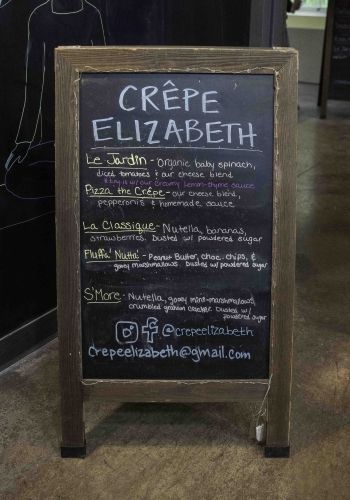 CRÊPE
ELIZABETH
Le Jardin - Organic baby spinach,
diced tomatoes & our cheese blend
* try it w/ our creamy lemon-thyme sauce
Pizza the Crêpe - our cheese blend,
pepperoni & homemade sauce
La Classique - Nutella, bananas,
strawberries. Dusted w/ powdered sugar
Fluffa' Nutta' - Peanut Butter, choc. chips, &
gooey marshmallows. Dusted w/ powdered sugar
S'More - Nutella, gooey mini-marshmallows,
crumbled graham cracker. Dusted w/
powdered sugar
@crepeelizabeth
crepeelizabeth@gmail.com